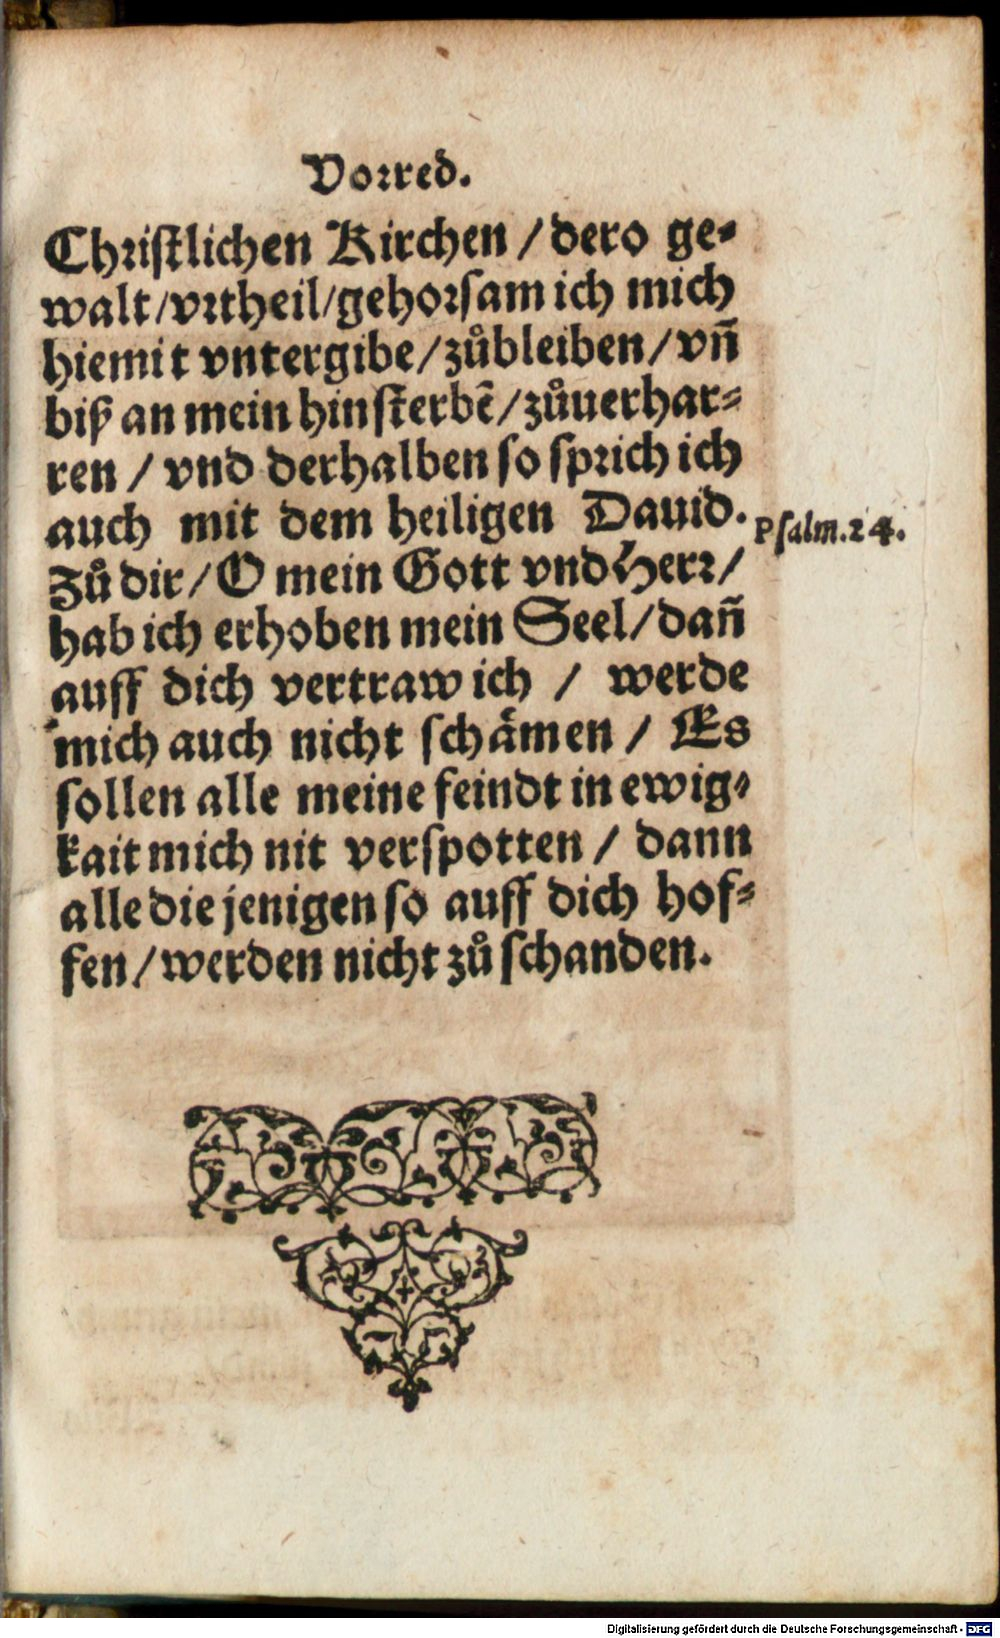 Vorred.
Christlichen Kirchen / dero ge-
walt / vrtheil / gehorsam ich mich
hiemit vntergibe / zůbleiben / vñ
biß an mein hinsterbẽ / zůuerhar-
ren / vnd derhalben so sprich ich
auch mit dem heiligen Dauid.
Psalm. 24.
Zů dir / O mein Gott vnd Herr /
hab ich erhoben mein Seel / dañ
auff dich vertraw ich / werde
mich auch nicht schämen / Es
sollen alle meine feindt in ewig-
kait mich nit verspotten / dann
alle die jenigen so auff dich hof-
fen / werden nicht zů schanden.
Digitalisierung gefördert durch die Deutsche Forschungsgemeinschaft - DFG